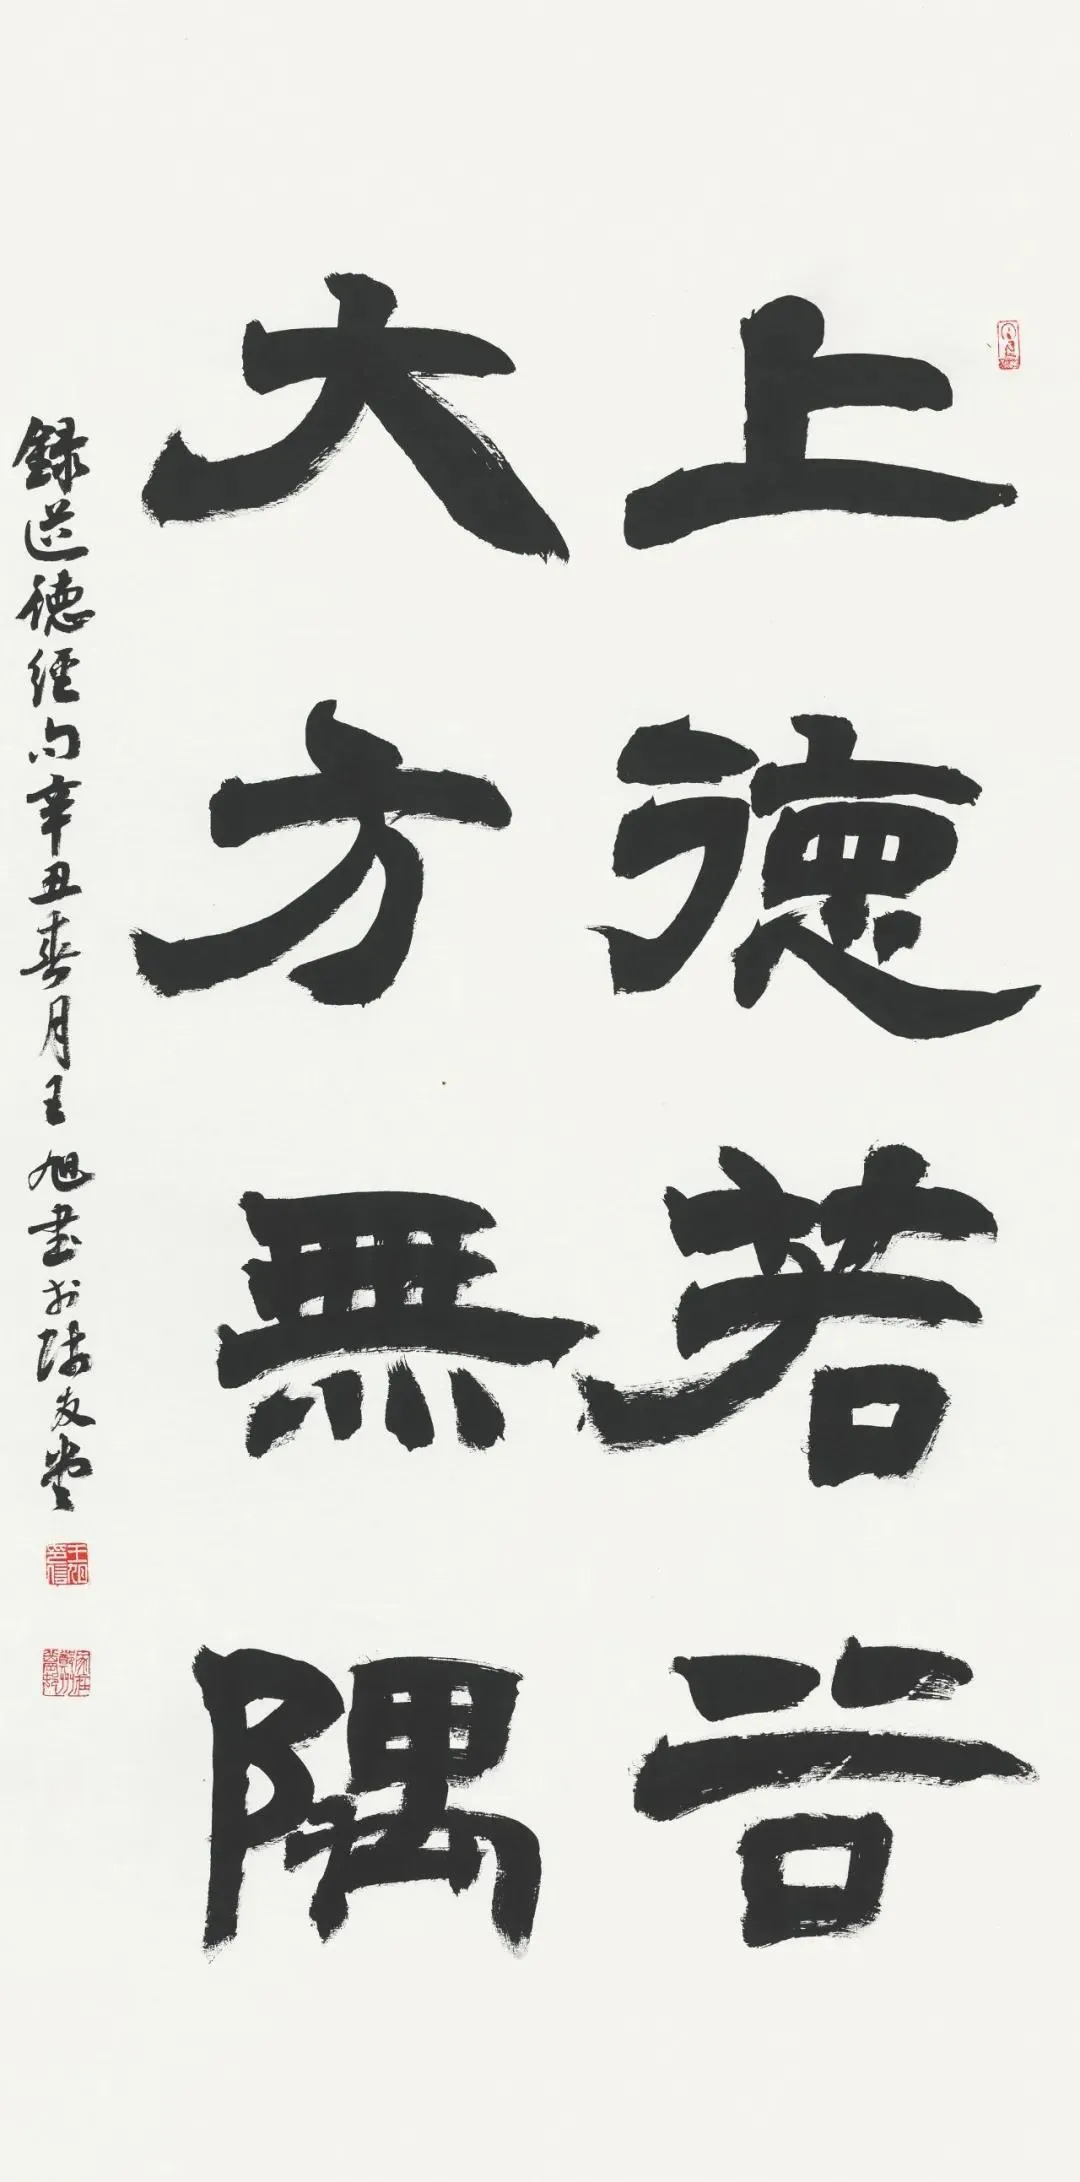 上德若谷
大方無隅
録道德經句辛丑春月王旭書於師友堂
王旭印信